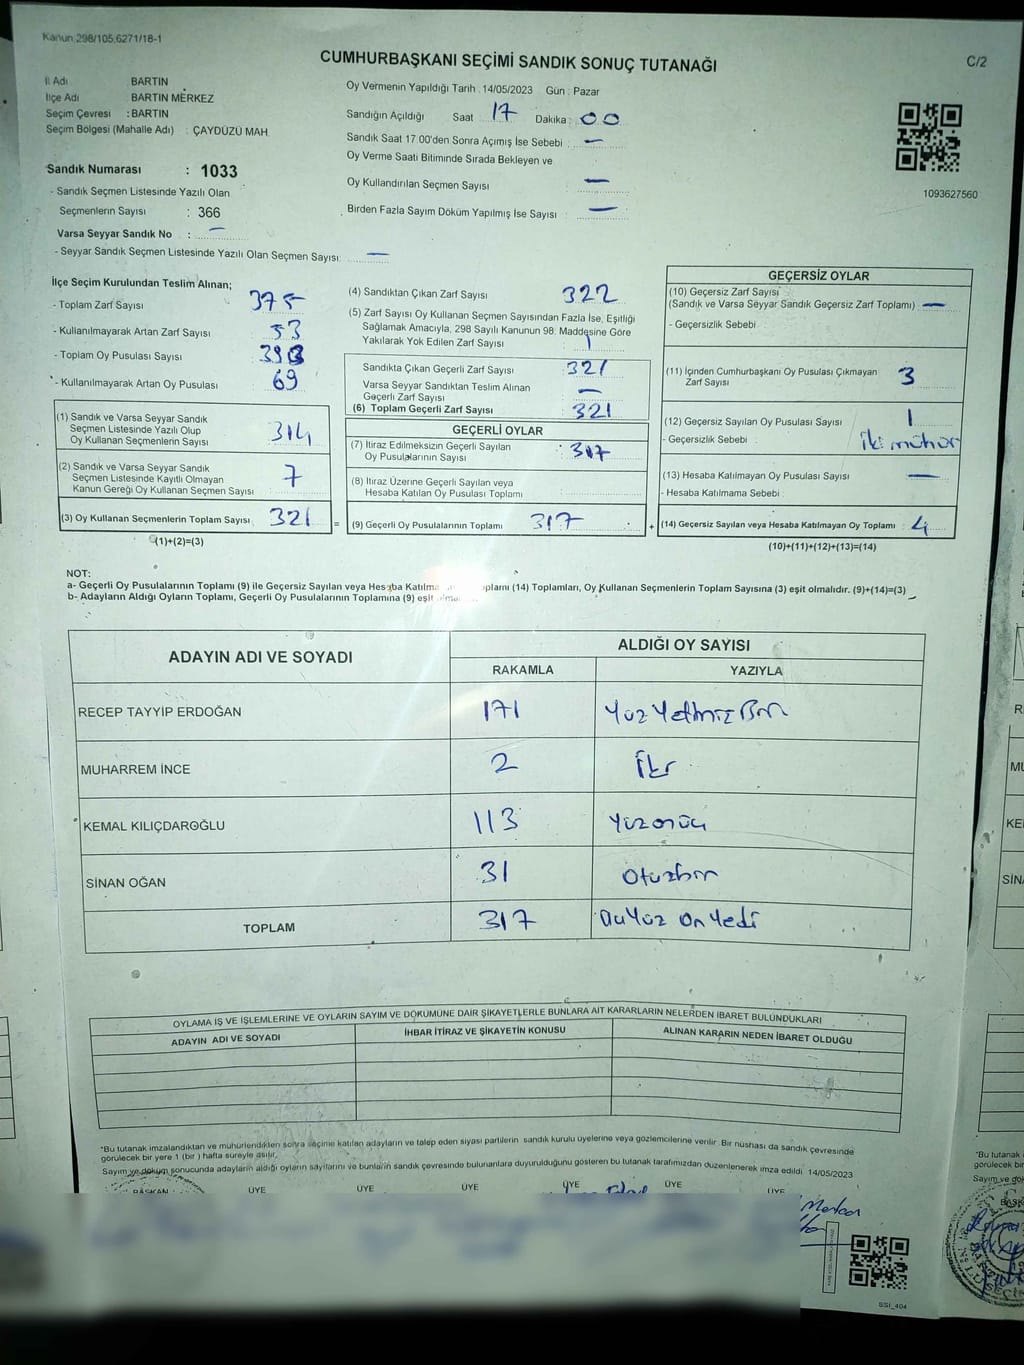 Kanun 298/105,6271/18-1
CUMHURBAŞKANI SEÇİMİ SANDIK SONUÇ TUTANAĞI
C/2
İl Adı BARTIN
İlçe Adı BARTIN MERKEZ
Seçim Çevresi : BARTIN
Seçim Bölgesi (Mahalle Adı) : ÇAYDÜZÜ MAH
Sandık Numarası : 1033
- Sandık Seçmen Listesinde Yazılı Olan
Seçmenlerin Sayısı : 366
Varsa Seyyar Sandık No : —
- Seyyar Sandık Seçmen Listesinde Yazılı Olan Seçmen Sayısı: —
Oy Vermenin Yapıldığı Tarih : 14/05/2023 Gün : Pazar
Sandığın Açıldığı Saat 17 Dakika : 00
Sandık Saat 17:00'den Sonra Açımış İse Sebebi : —
Oy Verme Saati Bitiminde Sırada Bekleyen ve
Oy Kullandırılan Seçmen Sayısı : —
Birden Fazla Sayım Döküm Yapılmış İse Sayısı : —
1093627560
İlçe Seçim Kurulundan Teslim Alınan;
- Toplam Zarf Sayısı 375
- Kullanılmayarak Artan Zarf Sayısı 53
- Toplam Oy Pusulası Sayısı
- Kullanılmayarak Artan Oy Pusulası 69
(1) Sandık ve Varsa Seyyar Sandık
Seçmen Listesinde Yazılı Olup
Oy Kullanan Seçmenlerin Sayısı 314
(2) Sandık ve Varsa Seyyar Sandık
Seçmen Listesinde Kayıtlı Olmayan
Kanun Gereği Oy Kullanan Seçmen Sayısı 7
(3) Oy Kullanan Seçmenlerin Toplam Sayısı 321
(1)+(2)=(3)
(4) Sandıktan Çıkan Zarf Sayısı 322
(5) Zarf Sayısı Oy Kullanan Seçmen Sayısından Fazla İse, Eşitliği
Sağlamak Amacıyla, 298 Sayılı Kanunun 98. Maddesine Göre
Yakılarak Yok Edilen Zarf Sayısı 1
Sandıkta Çıkan Geçerli Zarf Sayısı 321
Varsa Seyyar Sandıktan Teslim Alınan
Geçerli Zarf Sayısı —
(6) Toplam Geçerli Zarf Sayısı 321
GEÇERLİ OYLAR
(7) İtiraz Edilmeksizin Geçerli Sayılan
Oy Pusulalarının Sayısı : 317
(8) İtiraz Üzerine Geçerli Sayılan veya
Hesaba Katılan Oy Pusulası Toplamı
= (9) Geçerli Oy Pusulalarının Toplamı 317
GEÇERSİZ OYLAR
(10) Geçersiz Zarf Sayısı
(Sandık ve Varsa Seyyar Sandık Geçersiz Zarf Toplamı) —
- Geçersizlik Sebebi
(11) İçinden Cumhurbaşkanı Oy Pusulası Çıkmayan
Zarf Sayısı 3
(12) Geçersiz Sayılan Oy Pusulası Sayısı 1
- Geçersizlik Sebebi : iki mühür
(13) Hesaba Katılmayan Oy Pusulası Sayısı —
- Hesaba Katılmama Sebebi
+ (14) Geçersiz Sayılan veya Hesaba Katılmayan Oy Toplamı : 4
(10)+(11)+(12)+(13)=(14)
NOT:
a- Geçerli Oy Pusulalarının Toplamı (9) ile Geçersiz Sayılan veya Hesaba (14) Toplamları, Oy Kullanan Seçmenlerin Toplam Sayısına (3) eşit olmalıdır. (9)+(14)=(3)
b- Adayların Aldığı Oyların Toplamı, Geçerli Oy Pusulalarının Toplamına (9) eşit
ADAYIN ADI VE SOYADI ALDIĞI OY SAYISI
RAKAMLA YAZIYLA
RECEP TAYYİP ERDOĞAN 171 Yüz Yetmiş Bir
MUHARREM İNCE 2 İki
KEMAL KILIÇDAROĞLU 113 Yüzonüç
SİNAN OĞAN 31 Otuzbir
TOPLAM 317 Üçyüz On Yedi
OYLAMA İŞ VE İŞLEMLERİNE VE OYLARIN SAYIM VE DÖKÜMÜNE DAİR ŞİKAYETLERLE BUNLARA AİT KARARLARIN NELERDEN İBARET BULUNDUKLARI
ADAYIN ADI VE SOYADI İHBAR İTİRAZ VE ŞİKAYETİN KONUSU ALINAN KARARIN NEDEN İBARET OLDUĞU
*Bu tutanak imzalandıktan ve mühürlendikten sonra seçime katılan adayların ve talep eden siyasi partilerin sandık kurulu üyelerine veya gözlemcilerine verilir. Bir nüshası da sandık çevresinde
görülecek bir yere 1 (bir) hafta süreyle asılır.
Sayım ve döküm sonucunda adayların aldığı oyların sayılarını ve bunların sandık çevresinde bulunanlara duyurulduğunu gösteren bu tutanak tarafımızdan düzenlenerek imza edildi. 14/05/2023
BAŞKAN ÜYE ÜYE ÜYE ÜYE ÜYE ÜYE
SSİ_404